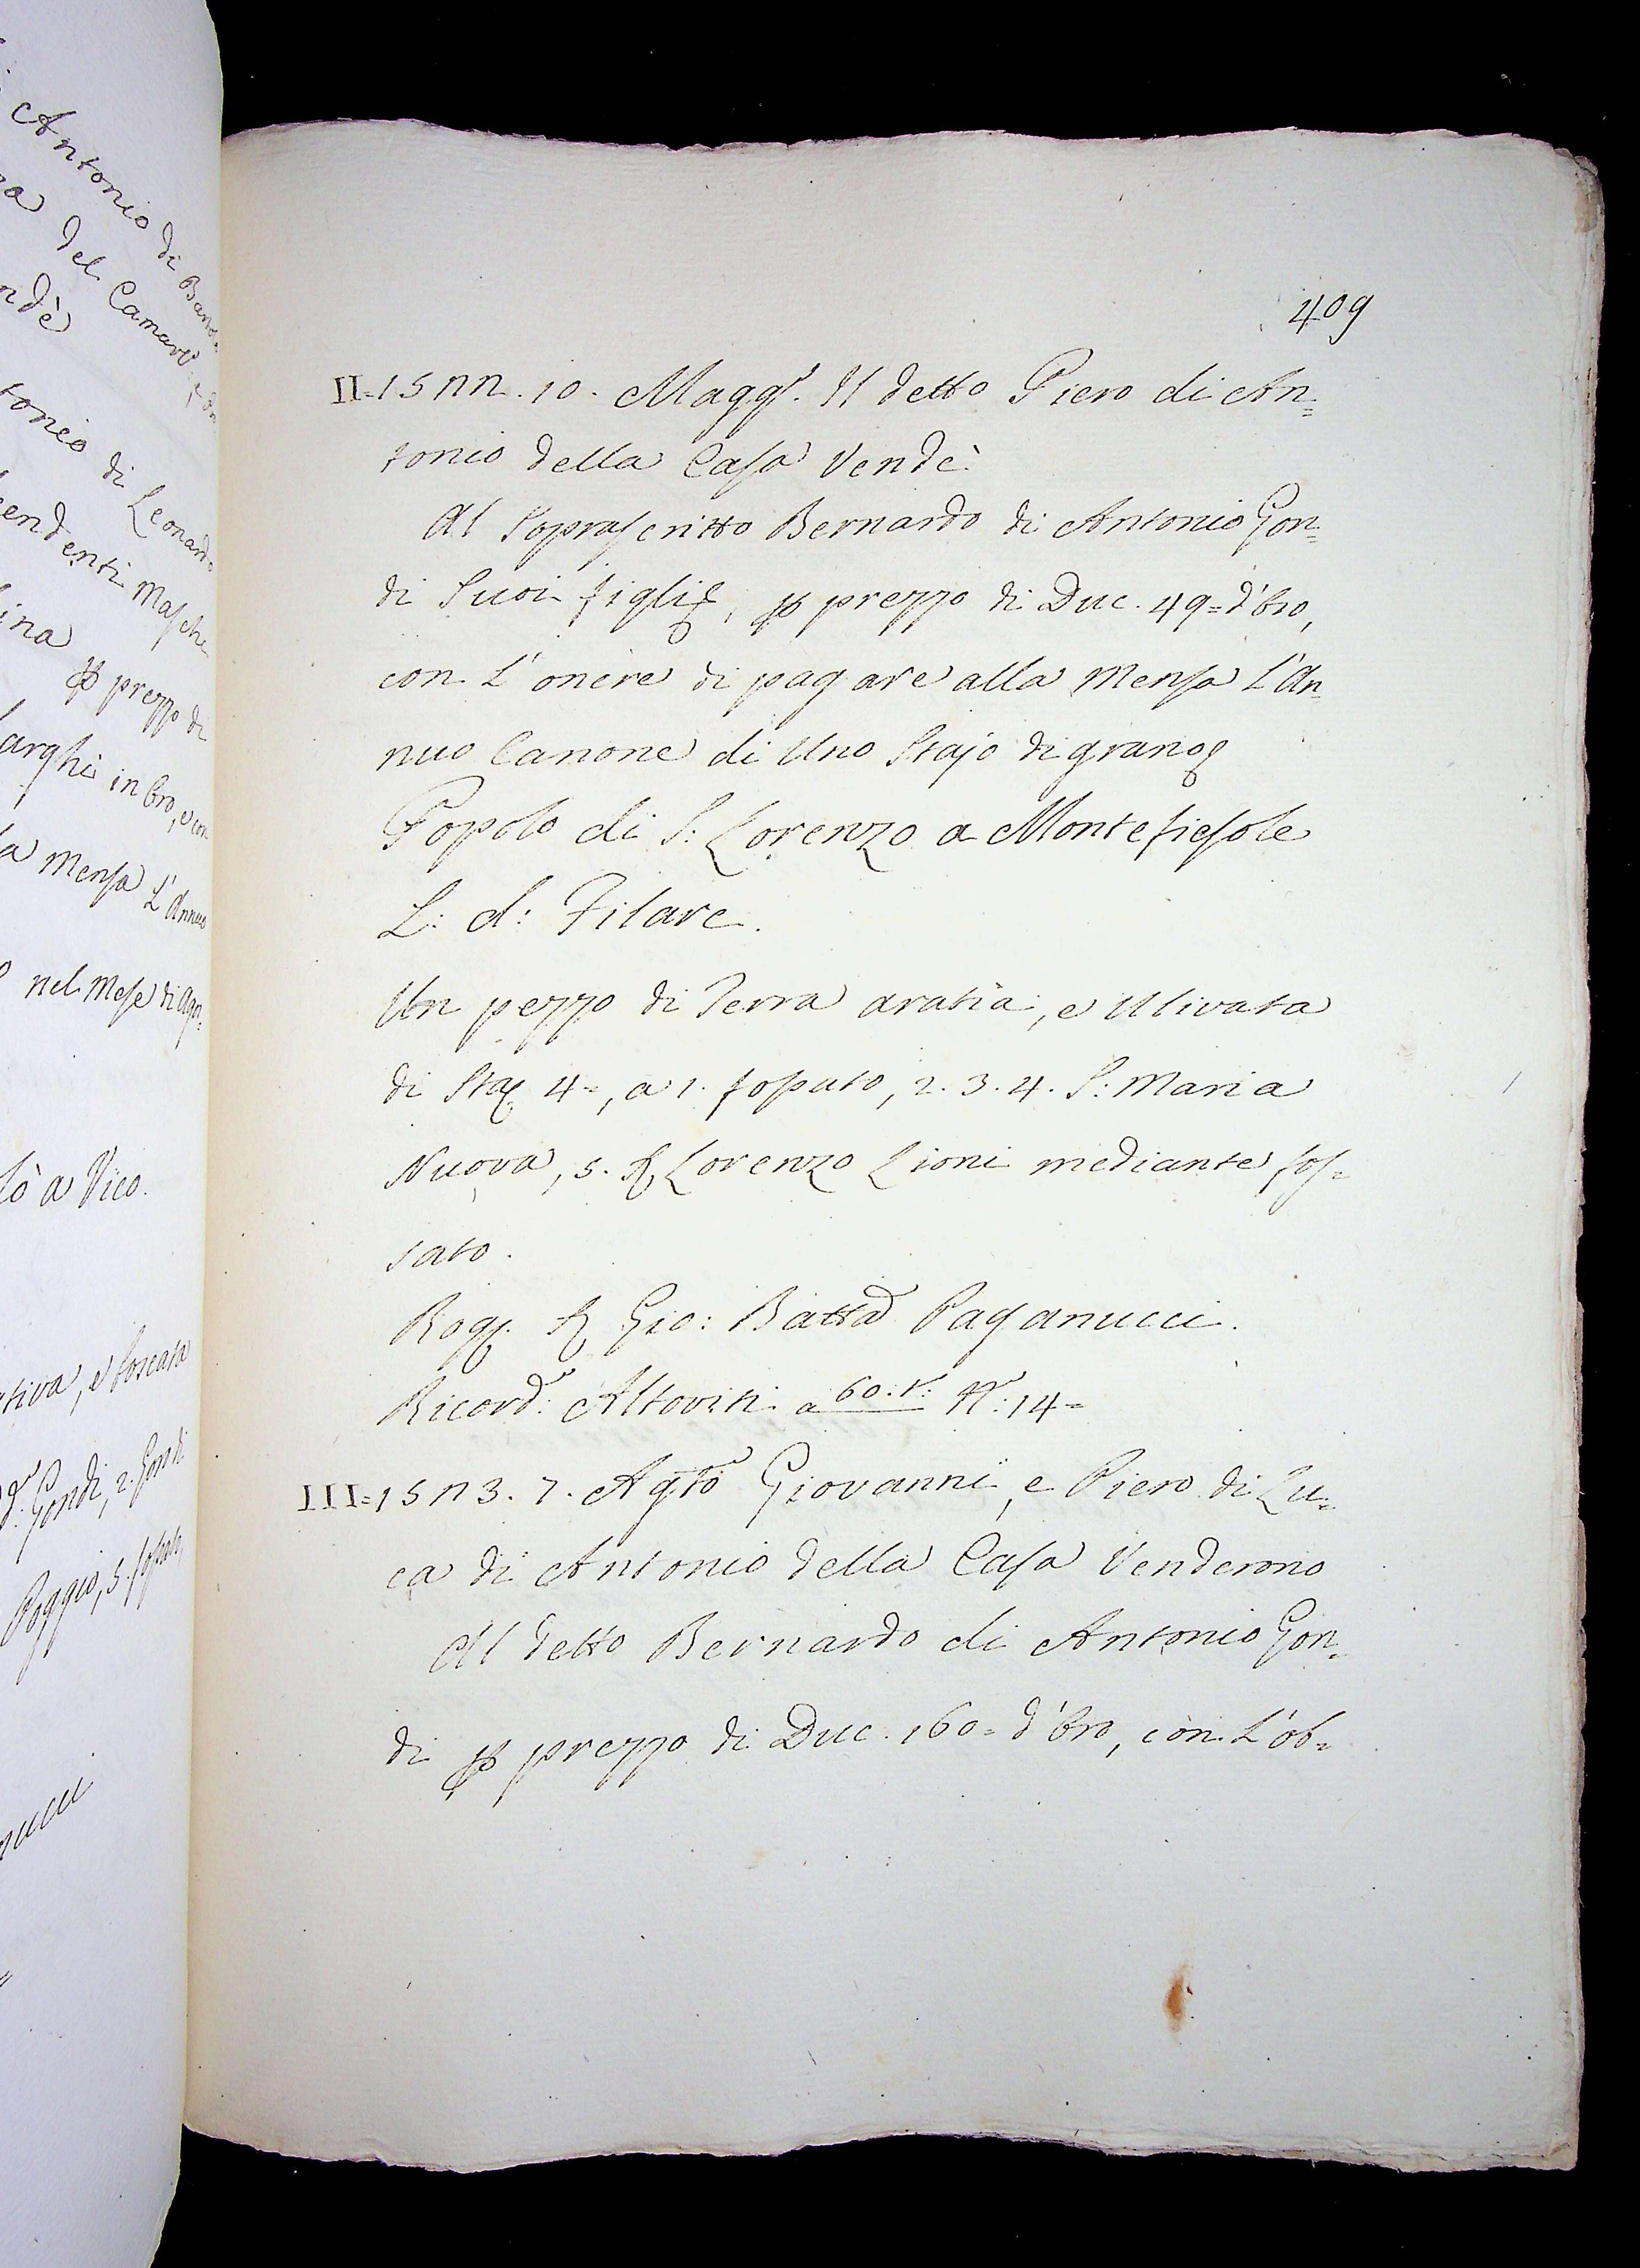 Antonio di
del Camarl:
ndè
tonio di Leonardo
cendenti Masch
ina
ꝑ prezzo di
Larghi in Oro, e con
a Mensa L'Annuo
nel Mese di Ago=
lò a Vico.
ativa, e boscata
Gondi, 2. Gondi
Poggio, 5. fossato,
nucci
409
II=15nn. 10. Magg.º Il detto Piero di An=
tonio della Casa Vendè
Al Soprascritto Bernardo di Antonio Gon=
di Suoi figli &, ꝑ prezzo di Duc. 49= d'Oro,
con L'onere di pagare alla Mensa L'An=
nuo Canone di Uno Stajo di grano
Popolo di S: Lorenzo a Montefiesole
L: d: Filare.
Un pezzo di Terra aratia, e Ulivata
di Sta 4=, a 1. fossato, 2. 3. 4. S: Maria
Nuova, 5. Lorenzo Lioni mediante fos=
sato.
Rog. Gio: Batta Paganucci.
Ricord: Altoviti a 60: t: Nº: 14=
III=15n3. 7. Agto Giovanni, e Piero di Lu=
ca di Antonio della Casa Venderono
Al detto Bernardo di Antonio Gon=
di ꝑ prezzo di Duc. 160= d'Oro, con L'ob=